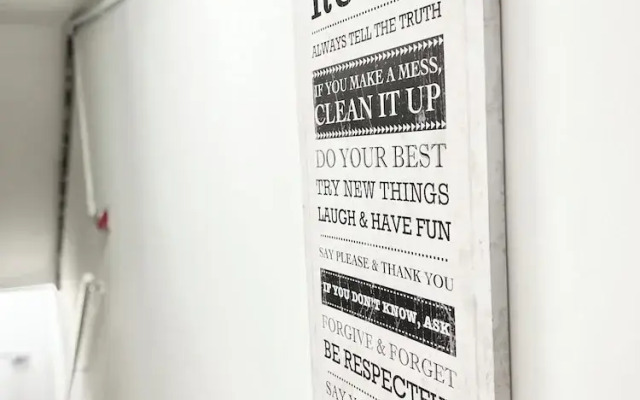 ALWAYS TELL THE TRUTH
IF YOU MAKE A MESS,
CLEAN IT UP
DO YOUR BEST
TRY NEW THINGS
LAUGH & HAVE FUN
SAY PLEASE & THANK YOU
IF YOU DON'T KNOW, ASK
FORGIVE & FORGET
BE
SAY